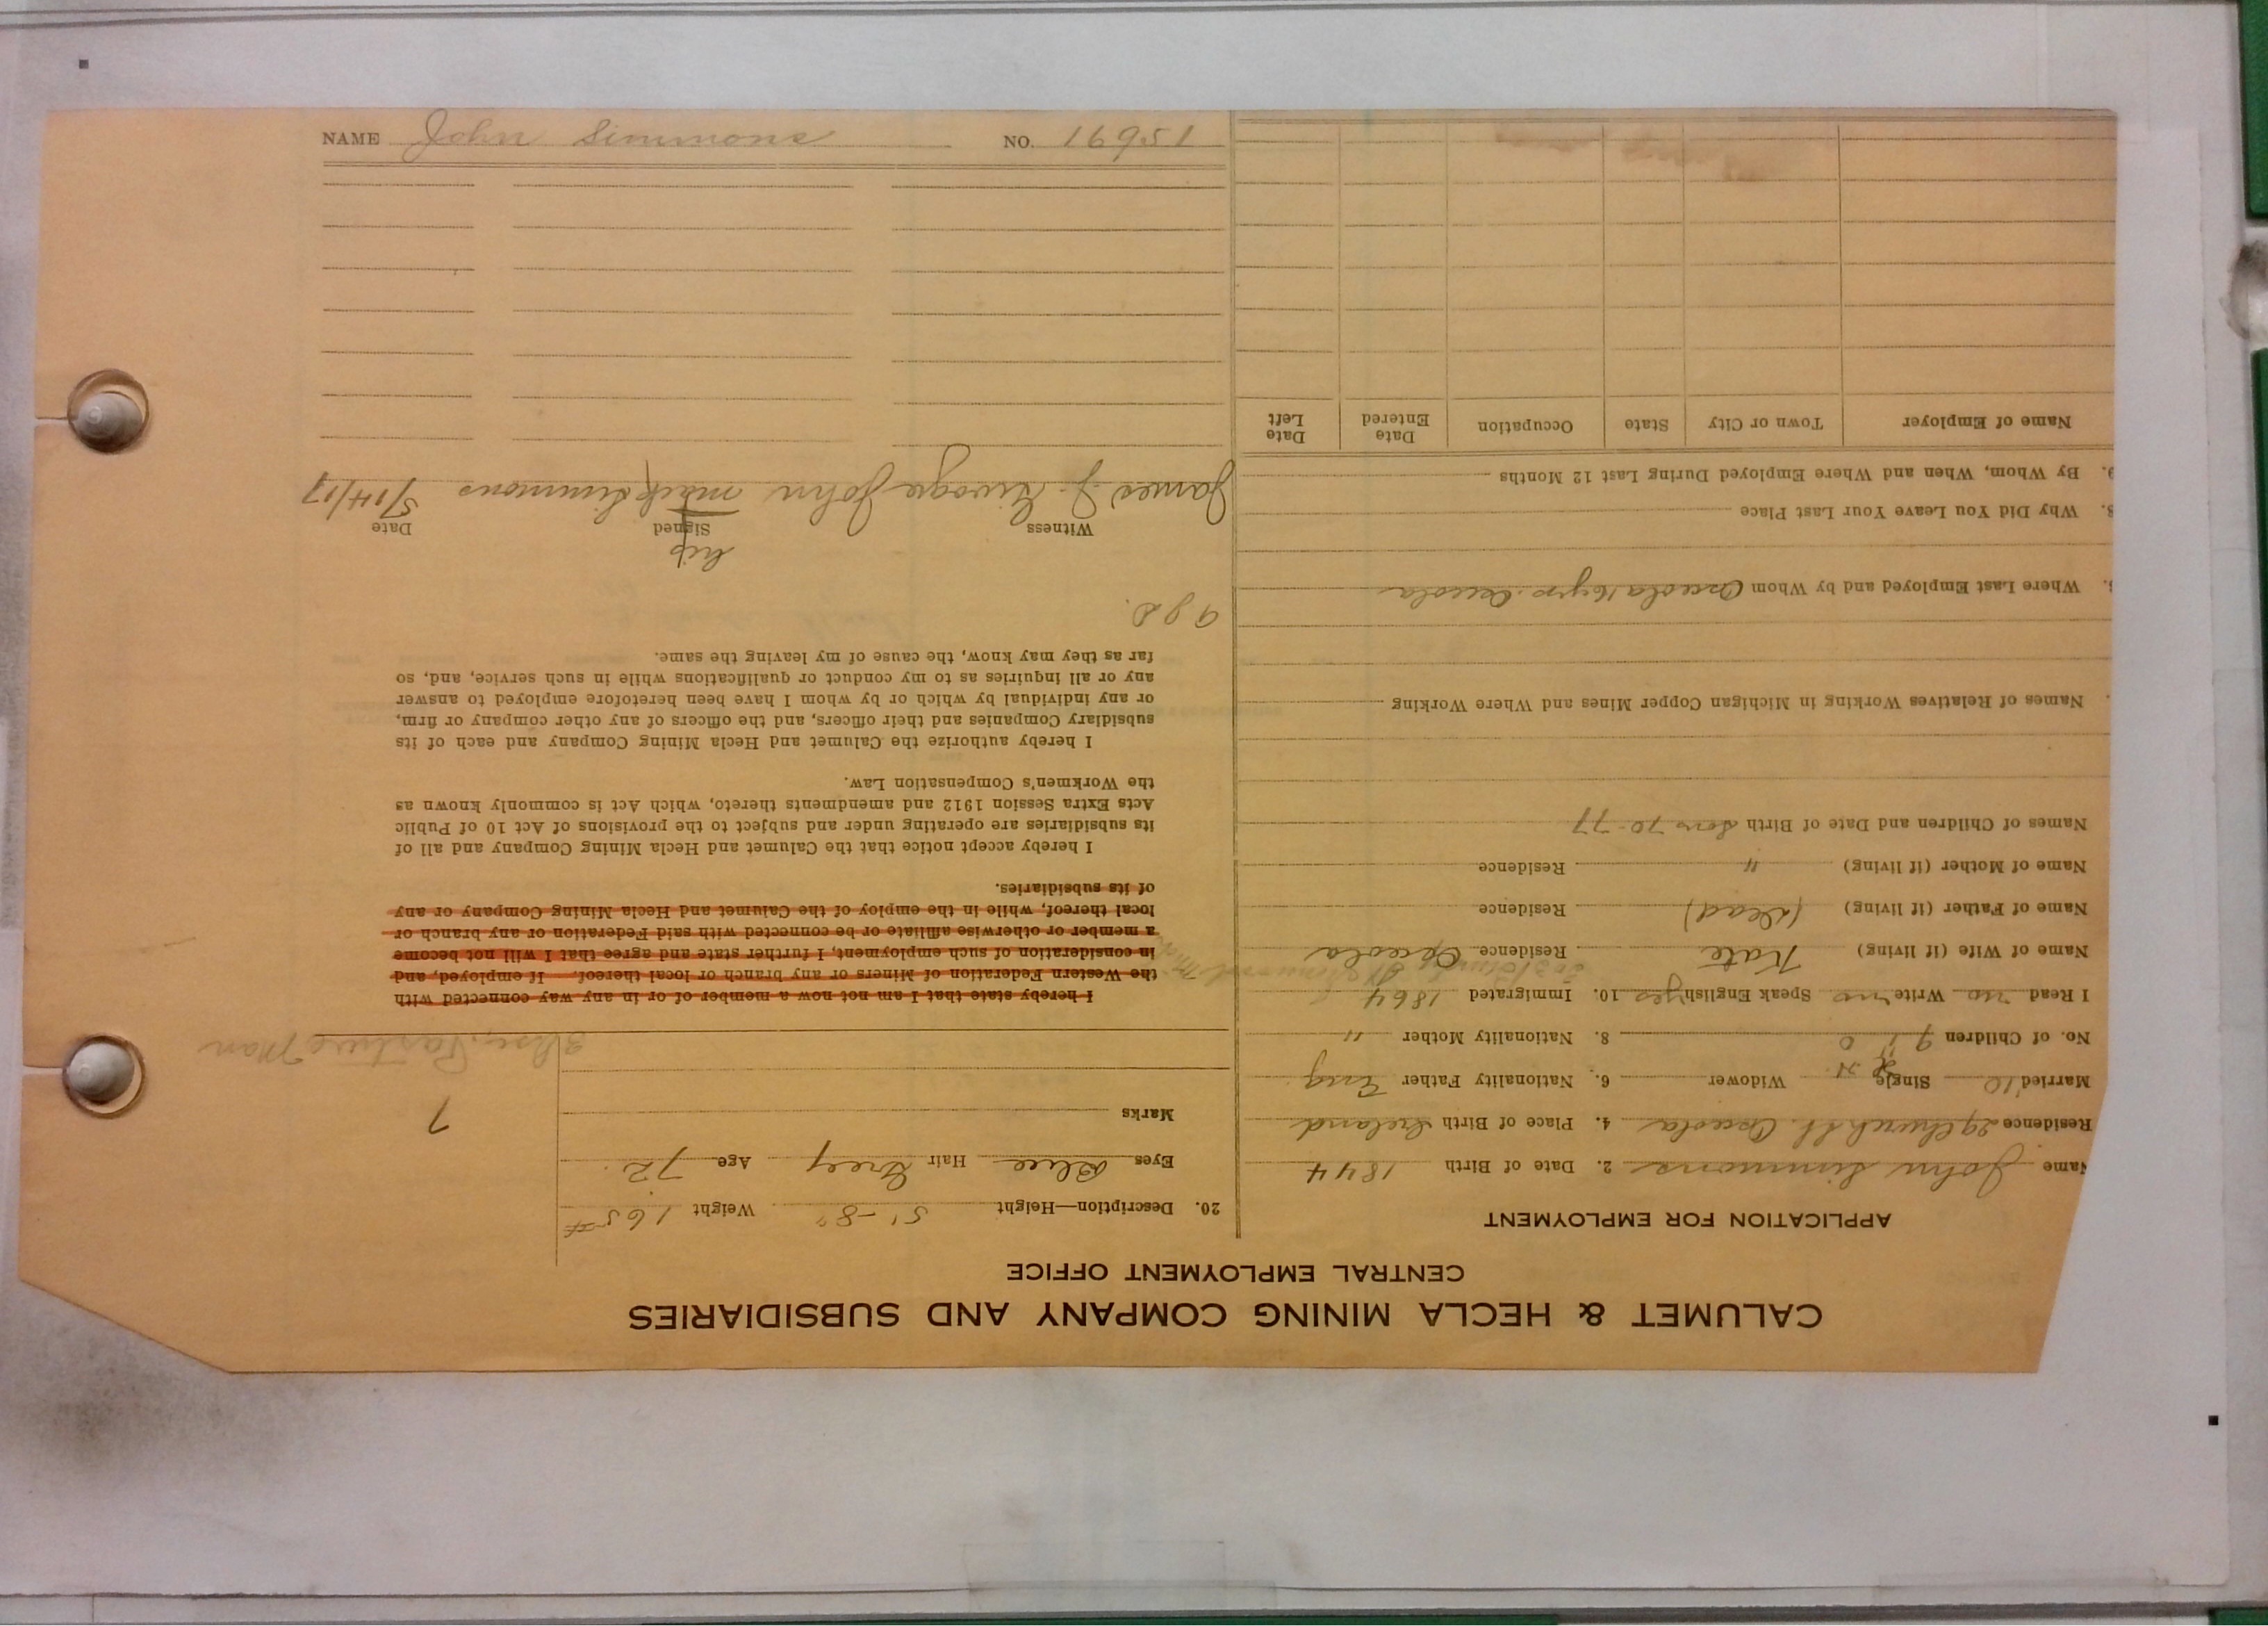 CALUMET & HECLA MINING COMPANY AND SUBSIDIARIES
CENTRAL EMPLOYMENT OFFICE
APPLICATION FOR EMPLOYMENT
Name John Simmons 2. Date of Birth 1844
Residence 29 Church St. Osceola 4. Place of Birth Ireland
Married Single Widower 6. Nationality Father Eng
No. of Children 9 8. Nationality Mother "
I Read no Write no Speak English yes 10. Immigrated 1864
Name of Wife (if living) Kate Residence Osceola
Name of Father (if living) (Dead) Residence
Name of Mother (if living) " Residence
Names of Children and Date of Birth Sons 70-77
Names of Relatives Working in Michigan Copper Mines and Where Working
Where Last Employed and by Whom Osceola 16 yrs. Osceola
Why Did You Leave Your Last Place
9. By Whom, When and Where Employed During Last 12 Months
Name of Employer Town or City State Occupation Date Entered Date Left
20. Description—Height 5'-8" Weight 165#
Eyes Blue Hair Grey Age 72
Marks
7
Pasture Man
I hereby state that I am not now a member of or in any way connected with
the Western Federation of Miners or any branch or local thereof. If employed, and
in consideration of such employment, I further state and agree that I will not become
a member or otherwise affiliate or be connected with said Federation or any branch or
local thereof, while in the employ of the Calumet and Hecla Mining Company or any
of its subsidiaries.
I hereby accept notice that the Calumet and Hecla Mining Company and all of
its subsidiaries are operating under and subject to the provisions of Act 10 of Public
Acts Extra Session 1912 and amendments thereto, which Act is commonly known as
the Workmen's Compensation Law.
I hereby authorize the Calumet and Hecla Mining Company and each of its
subsidiary Companies and their officers, and the officers of any other company or firm,
or any individual by which or by whom I have been heretofore employed to answer
any or all inquiries as to my conduct or qualifications while in such service, and, so
far as they may know, the cause of my leaving the same.
his
Witness Signed Date
James J. John mark Simmons 5/14/17
NAME John Simmons NO. 16951